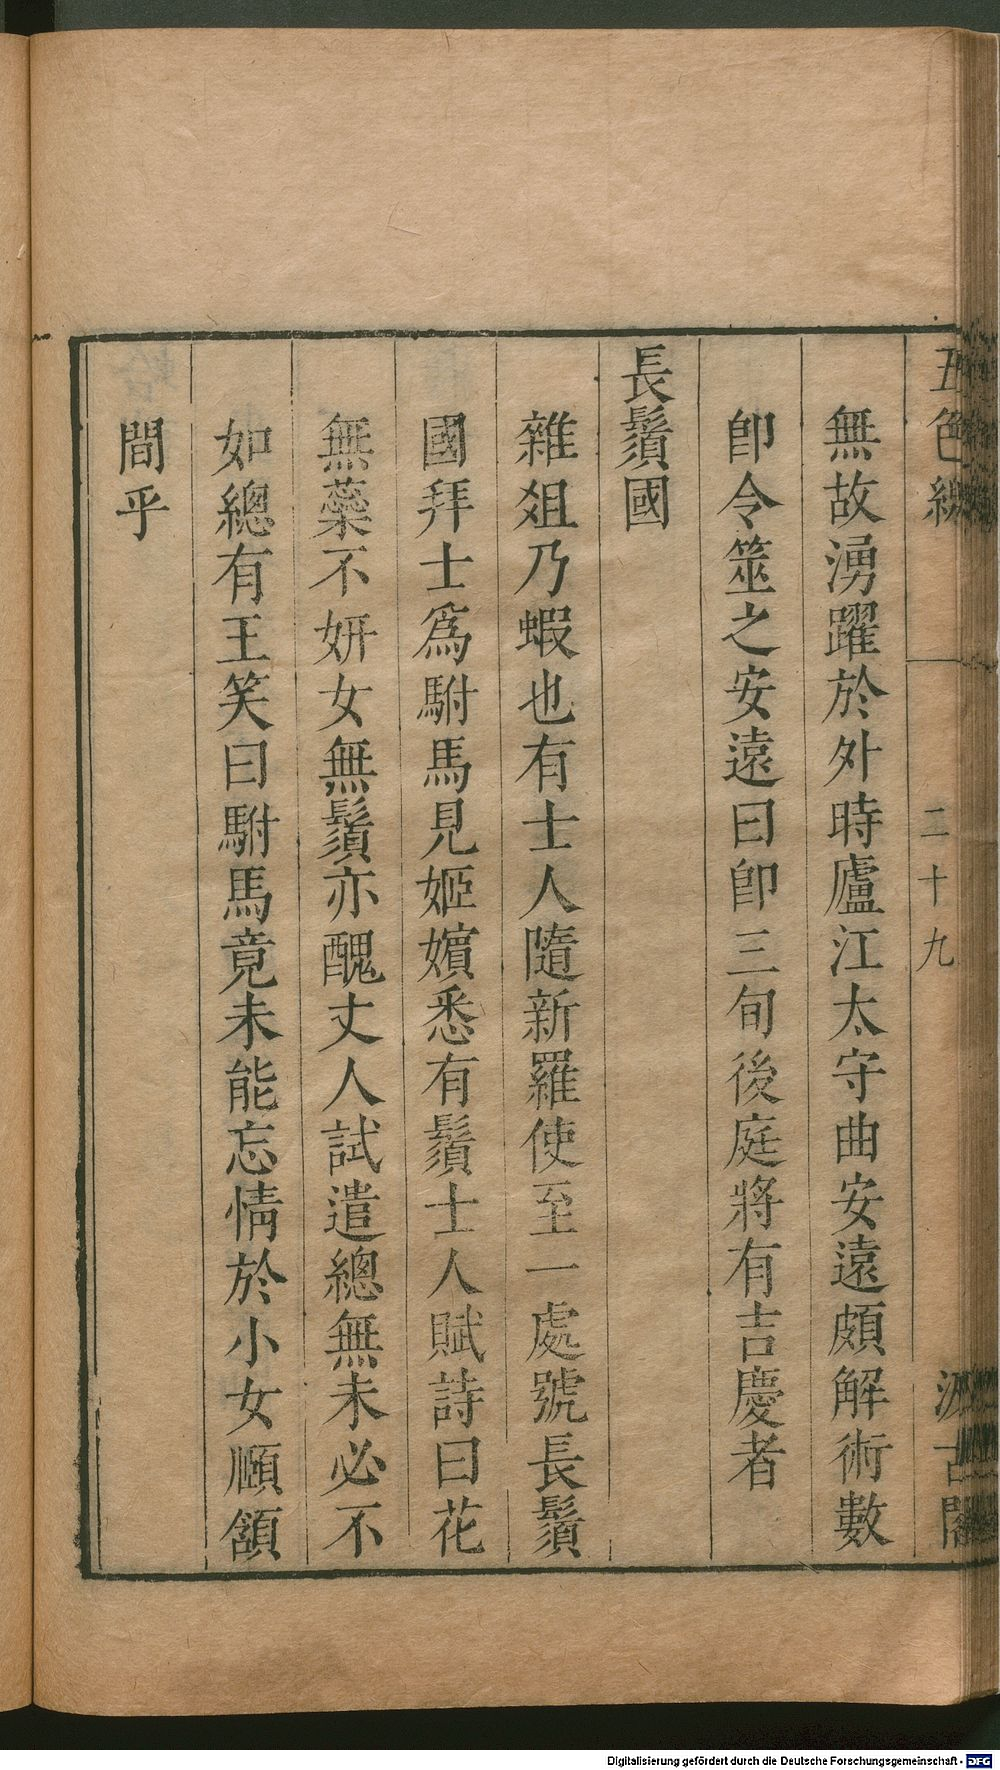 五色線
二十九
汲古閣
無故湧躍於外時廬江太守曲安遠頗解術數
卽令筮之安遠曰卽三旬後庭將有吉慶者
長鬚國
雜俎乃蝦也有士人隨新羅使至一處號長鬚
國拜士爲駙馬見姬嬪悉有鬚士人賦詩曰花
無蘂不妍女無鬚亦醜丈人試遣總無未必不
如總有王笑曰駙馬竟未能忘情於小女頤頷
間乎
Digitalisierung gefördert durch die Deutsche Forschungsgemeinschaft - DFG